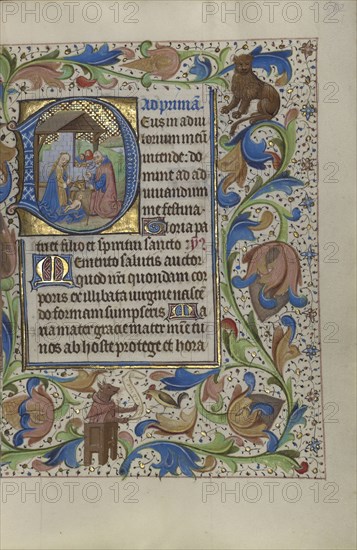 Ad primā
Deus in adiu
torium meū
intende: do
mine ad ad
iuuandum
me festina
Gloria pa
tri et filio et spiritui sancto
Memento salutis auctor
quod nr̄i quondam cor
poris ex illibata uirgine nascē
do formam sumpseris Ma
ria mater gracie mater mie tu
nos ab hoste protege et hora
PHOTO12